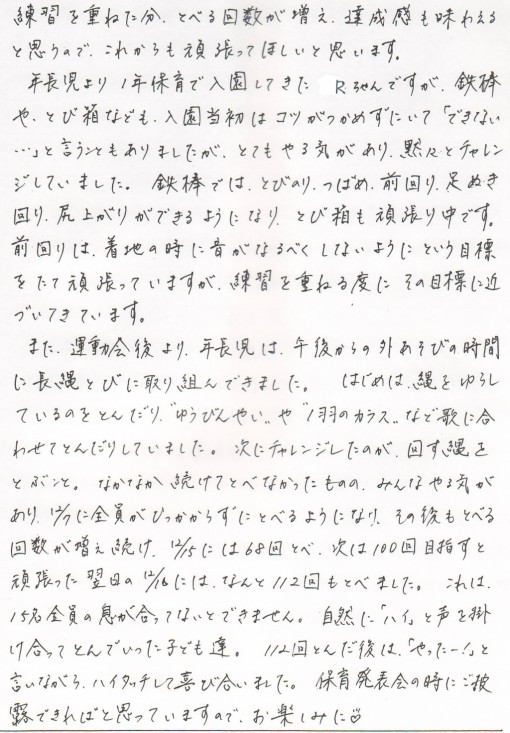 練習を重ねた分、とべる回数が増え、達成感も味わえる
と思うので、これからも頑張ってほしいと思います。
年長児より1年保育で入園してきた Rちゃんですが、鉄棒
や、とび箱なども、入園当初はコツがつかめずにいて「できない
…」と言うこともありましたが、とてもやる気があり、黙々とチャレン
ジしていました。 鉄棒では、とびのり、つばめ、前回り、足ぬき
回り、尻上がりができるようになり、とび箱も頑張り中です。
前回りは、着地の時に音がなるべくしないようにという目標
をたて頑張っていますが、練習を重ねる度にその目標に近
づいてきています。
また、運動会後より、年長児は、午後からの外あそびの時間
に長縄とびに取り組んできました。 はじめは、縄をゆらし
ているのをとんだり、"ゆうびんやい"や"1羽のカラス"など歌に合
わせてとんだりしていました。次にチャレンジしたのが、回す縄を
とぶこと。なかなか続けてとべなかったものの、みんなやる気が
あり、12/7に全員がひっかからずにとべるようになり、その後もとべる
回数が増え続け、12/15には68回とべ、次は100回目指すと
頑張った翌日の12/16には、なんと112回もとべました。これは、
15名全員の息が合ってないとできません。自然に「ハイ」と声を掛
け合ってとんでいった子ども達。 112回とんだ後は、「やったー!」と
言いながら、ハイタッチして喜び合いました。保育発表会の時にご披
露できればと思っていますので、お楽しみに♡